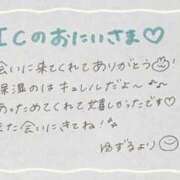 ICのおにいさま♡
会いに来てくれてありがとう
保湿のはキュレルだよ〜♪
あっためてくれて嬉しかったです♡
また会いにきてね!
ゆずるより